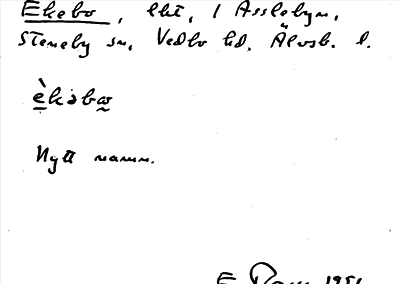 Ekebo, lht, i Asslebyn,
Steneby sn, Vedbo hd, Älvsb. l.
è̱kəbω̰
Nytt namn.
E 1951